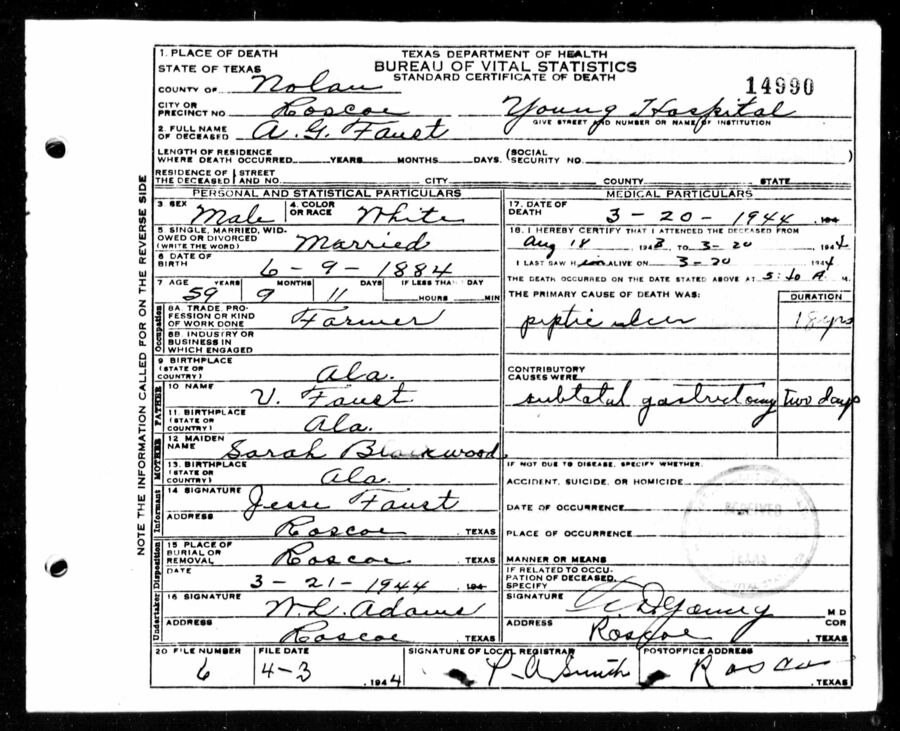 TEXAS DEPARTMENT OF HEALTH
BUREAU OF VITAL STATISTICS
STANDARD CERTIFICATE OF DEATH
14990
1. PLACE OF DEATH
STATE OF TEXAS
COUNTY OF Nolan
CITY OR PRECINCT NO. Roscoe
Young Hospital
GIVE STREET AND NUMBER OR NAME OF INSTITUTION
2. FULL NAME OF DECEASED A. G. Faust
LENGTH OF RESIDENCE WHERE DEATH OCCURRED YEARS MONTHS DAYS. (SOCIAL SECURITY NO. )
RESIDENCE OF THE DECEASED STREET AND NO. CITY COUNTY STATE
NOTE THE INFORMATION CALLED FOR ON THE REVERSE SIDE
PERSONAL AND STATISTICAL PARTICULARS
3 SEX Male
4. COLOR OR RACE White
5 SINGLE, MARRIED, WIDOWED OR DIVORCED (WRITE THE WORD) Married
6 DATE OF BIRTH 6-9-1884
7 AGE YEARS MONTHS DAYS IF LESS THAN 1 DAY
59 9 11 HOURS MIN
Occupation
8A. TRADE, PROFESSION OR KIND OF WORK DONE Farmer
8B. INDUSTRY OR BUSINESS IN WHICH ENGAGED
9 BIRTHPLACE (STATE OR COUNTRY) Ala.
FATHER
10 NAME V. Faust
11. BIRTHPLACE (STATE OR COUNTRY) Ala.
MOTHER
12 MAIDEN NAME Sarah Blackwood
13. BIRTHPLACE (STATE OR COUNTRY) Ala.
Informant
14 SIGNATURE Jesse Faust
ADDRESS Roscoe, TEXAS
Disposition
15 PLACE OF BURIAL OR REMOVAL Roscoe, TEXAS
DATE 3-21-1944 194
Undertaker
16 SIGNATURE W. L. Adams
ADDRESS Roscoe, TEXAS
MEDICAL PARTICULARS
17. DATE OF DEATH 3-20-1944 194
18. I HEREBY CERTIFY THAT I ATTENDED THE DECEASED FROM
Aug 18 1943, TO 3-20 1944
I LAST SAW H im ALIVE ON 3-20 1944
THE DEATH OCCURRED ON THE DATE STATED ABOVE AT 5:10 A M.
THE PRIMARY CAUSE OF DEATH WAS: DURATION
peptic ulcer 18 yrs
CONTRIBUTORY CAUSES WERE
subtotal gastrectomy two days
IF NOT DUE TO DISEASE, SPECIFY WHETHER:
ACCIDENT, SUICIDE, OR HOMICIDE
DATE OF OCCURRENCE
PLACE OF OCCURRENCE
MANNER OR MEANS
IF RELATED TO OCCUPATION OF DECEASED, SPECIFY
RECEIVED
TEXAS
SIGNATURE D. Young M D
COR
ADDRESS Roscoe, TEXAS
20 FILE NUMBER 6
FILE DATE 4-3 1944
SIGNATURE OF LOCAL REGISTRAR P. A. Smith
POSTOFFICE ADDRESS Roscoe, TEXAS